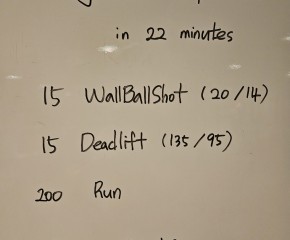 in 22 minutes
15 WallBallShot (20/14)
15 Deadlift (135/95)
200 Run